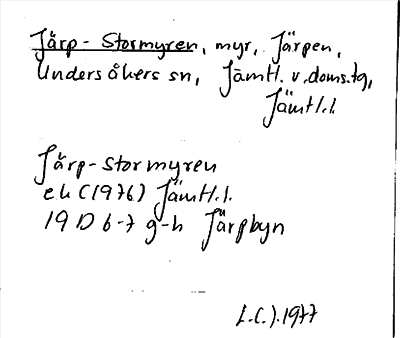 Järp-Stormyren, myr, Järpen,
Undersåkers sn, Jämtl. v. doms.tg,
Jämtl.l.
Järp-Stormyren
ek (1976) Jämtl.l.
19 D 6-7 g-h Järpbyn
1977